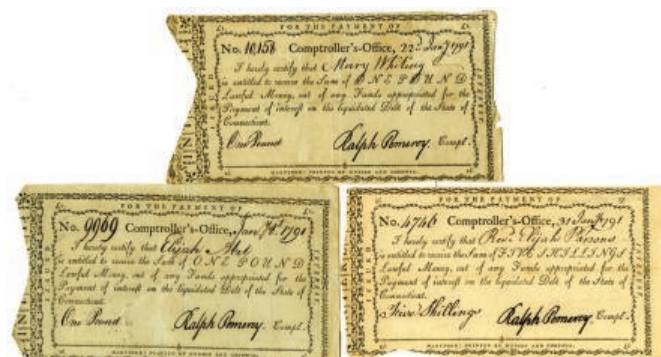 FOR THE PAYMENT OF
No. 10,158 Comptroller's-Office, 22d Jany 1791
I hereby certify that Mary Whiting
is entitled to receive the Sum of ONE POUND
Lawful Money, out of any Funds appropriated for the
Payment of interest on the liquidated Debt of the State of
Connecticut.
One Pound Ralph Pomeroy. Compt.
HARTFORD: PRINTED BY HUDSON AND GOODWIN.
ISSUED
INTEREST
FOR THE PAYMENT OF
No. 9969 Comptroller's-Office, 1791
I hereby certify that Elijah
is entitled to receive the Sum of ONE POUND
Lawful Money, out of any Funds appropriated for the
Payment of interest on the liquidated Debt of the State of
Connecticut.
One Pound Ralph Pomeroy. Compt.
HARTFORD: PRINTED BY HUDSON AND GOODWIN.
ISSUED
INTEREST
FOR THE PAYMENT OF
No. 4746 Comptroller's-Office, 31 Jany 1791
I hereby certify that Revd Elijah Parsons
is entitled to receive the Sum of FIVE SHILLINGS
Lawful Money, out of any Funds appropriated for the
Payment of interest on the liquidated Debt of the State of
Connecticut.
Five Shillings Ralph Pomeroy. Compt.
HARTFORD: PRINTED BY HUDSON AND GOODWIN.
ISSUED
INTEREST